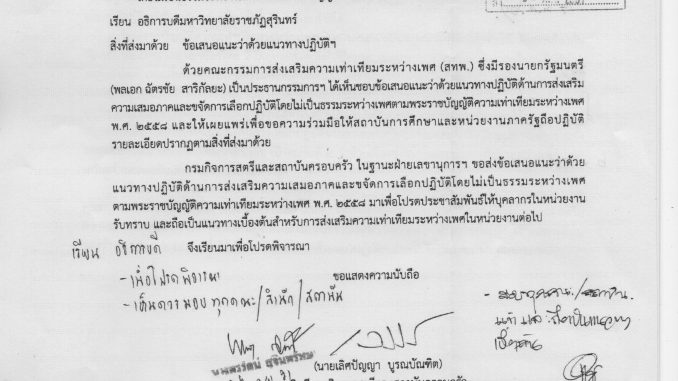 เรียน อธิการบดีมหาวิทยาลัยราชภัฏสุรินทร์
สิ่งที่ส่งมาด้วย ข้อเสนอแนะว่าด้วยแนวทางปฏิบัติฯ
ด้วยคณะกรรมการส่งเสริมความเท่าเทียมระหว่างเพศ (สทพ.) ซึ่งมีรองนายกรัฐมนตรี
(พลเอก ฉัตรชัย สาริกัลยะ) เป็นประธานกรรมการฯ ได้เห็นชอบข้อเสนอแนะว่าด้วยแนวทางปฏิบัติด้านการส่งเสริม
ความเสมอภาคและขจัดการเลือกปฏิบัติโดยไม่เป็นธรรมระหว่างเพศตามพระราชบัญญัติความเท่าเทียมระหว่างเพศ
พ.ศ. ๒๕๕๘ และให้เผยแพร่เพื่อขอความร่วมมือให้สถาบันการศึกษาและหน่วยงานภาครัฐถือปฏิบัติ
รายละเอียดปรากฏตามสิ่งที่ส่งมาด้วย
กรมกิจการสตรีและสถาบันครอบครัว ในฐานะฝ่ายเลขานุการฯ ขอส่งข้อเสนอแนะว่าด้วย
แนวทางปฏิบัติด้านการส่งเสริมความเสมอภาคและขจัดการเลือกปฏิบัติโดยไม่เป็นธรรมระหว่างเพศ
ตามพระราชบัญญัติความเท่าเทียมระหว่างเพศ พ.ศ. ๒๕๕๘ มาเพื่อโปรดประชาสัมพันธ์ให้บุคลากรในหน่วยงาน
รับทราบ และถือเป็นแนวทางเบื้องต้นสำหรับการส่งเสริมความเท่าเทียมระหว่างเพศในหน่วยงานต่อไป
เรียน อธิการบดี
จึงเรียนมาเพื่อโปรดพิจารณา
- เพื่อโปรดพิจารณา
ขอแสดงความนับถือ
- เห็นควรมอบทุกคณะ/สำนัก/สถาบัน
(นายเลิศปัญญา บูรณบัณฑิต)